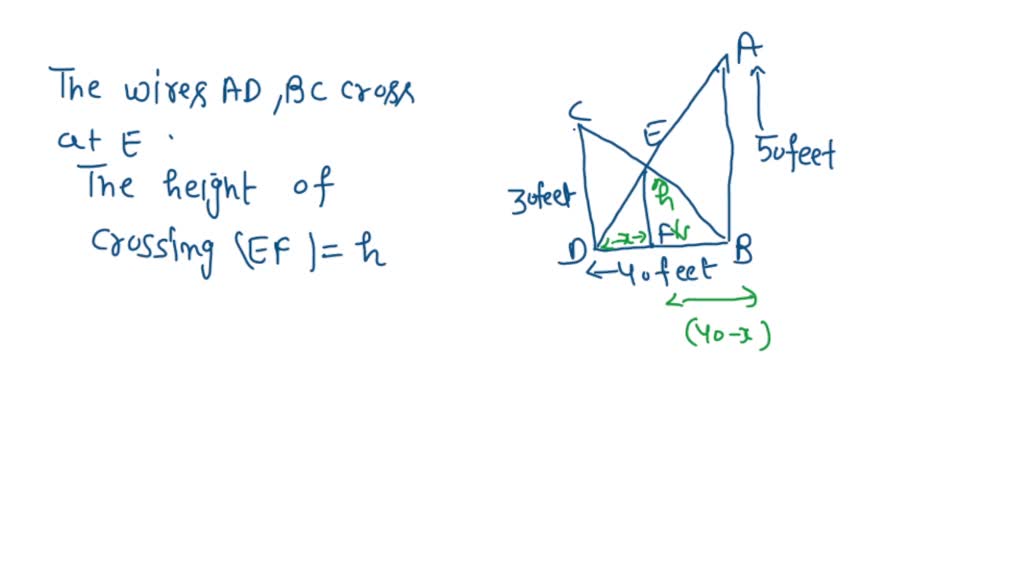 The wires AD, BC cross
at E.
The height of
crossing (EF) = h
A
C
E
50feet
30feet
h
D
x
F
B
40feet
(40-x)